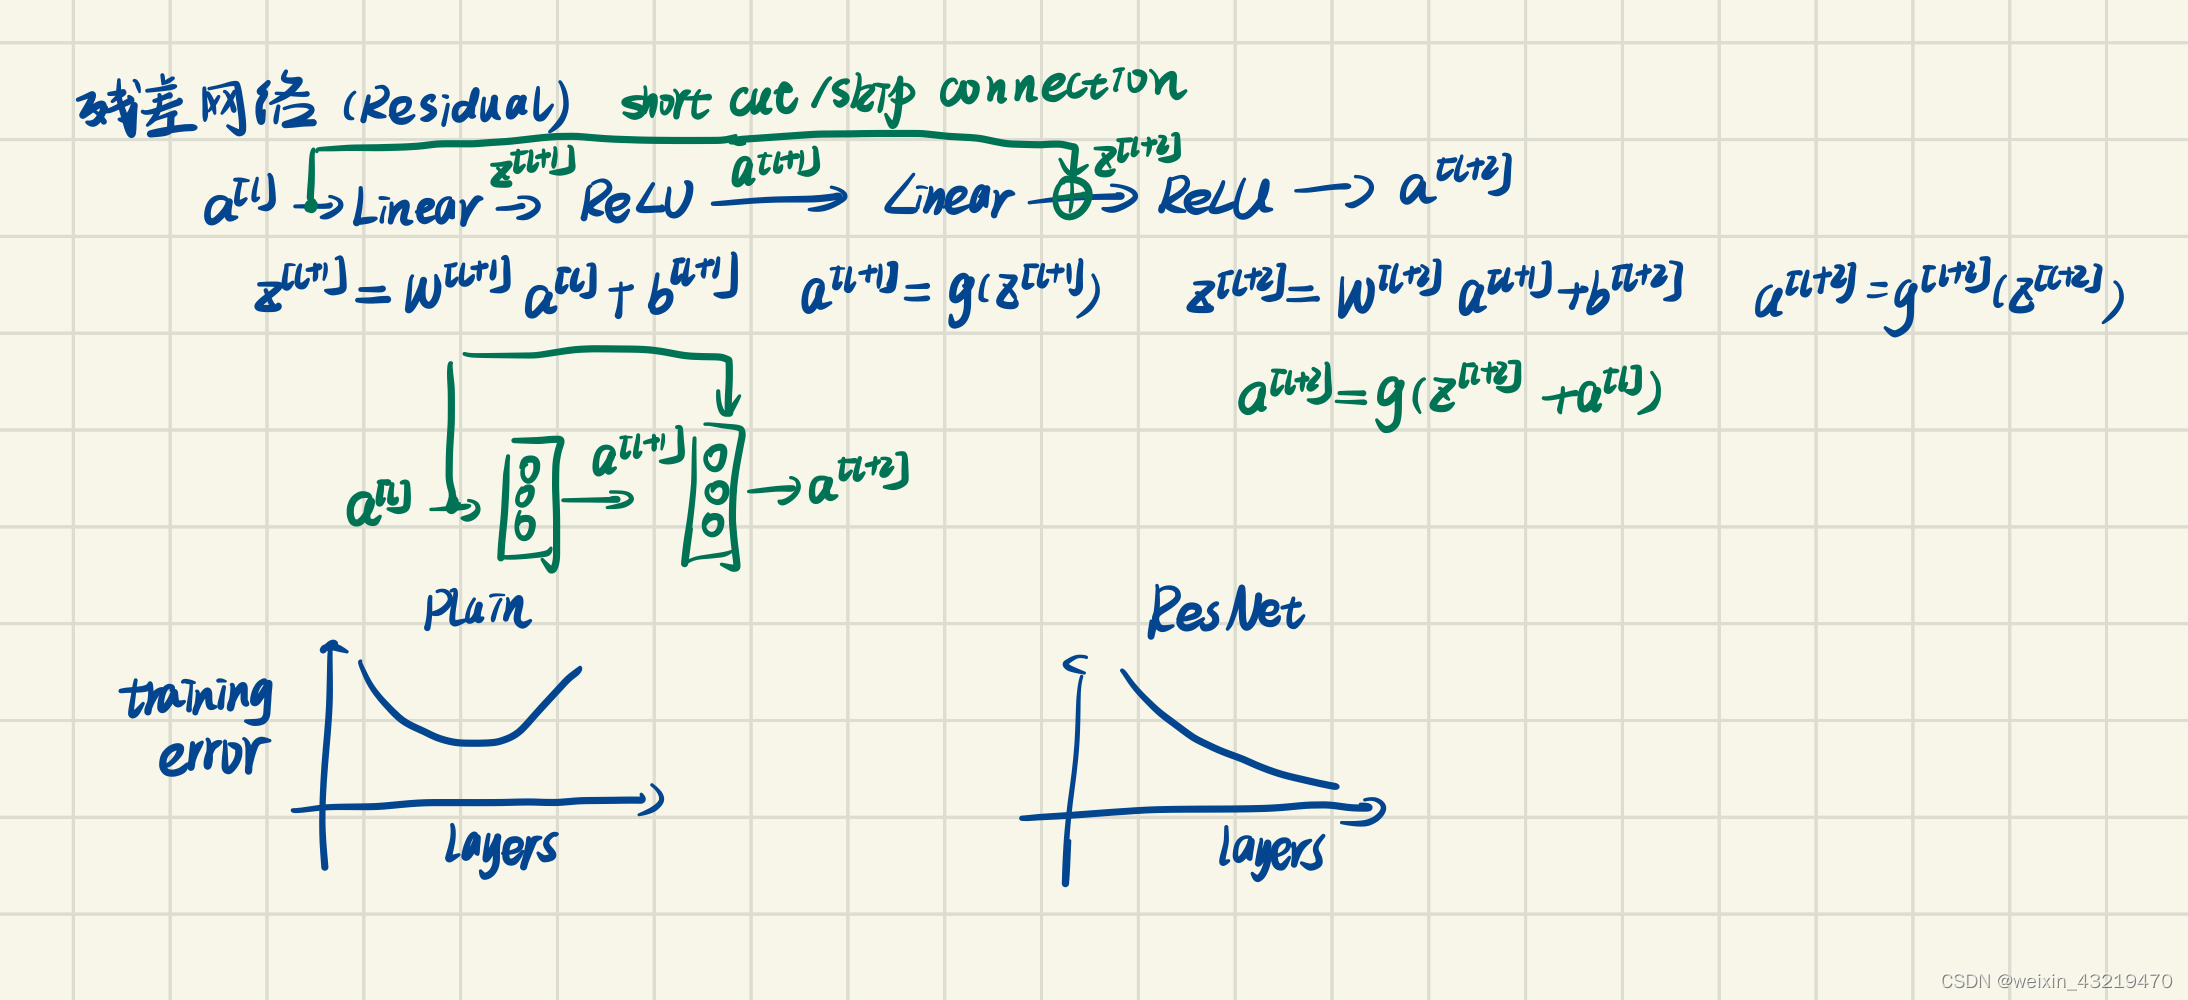 残差网络 (Residual) short cut /skip connection
z^[l+1] a^[l+1] z^[l+2]
a^[l] → Linear → ReLU → Linear → ReLU → a^[l+2]
z^[l+1] = W^[l+1] a^[l] + b^[l+1] a^[l+1] = g(z^[l+1]) z^[l+2] = W^[l+2] a^[l+1] + b^[l+2] a^[l+2] = g^[l+2](z^[l+2])
a^[l+2] = g(z^[l+2] + a^[l])
a^[l] → a^[l+1] → a^[l+2]
Plain ResNet
training
error
layers layers
CSDN @weixin_43219470